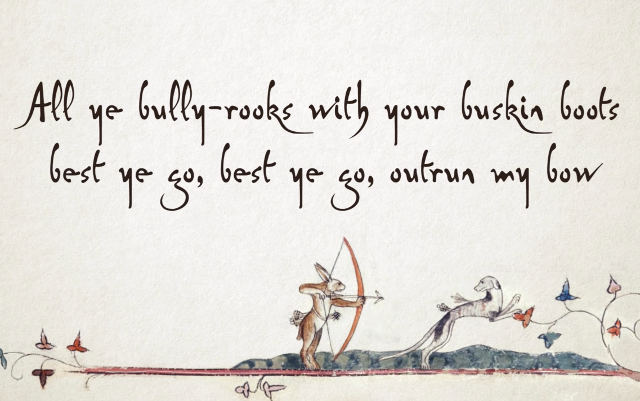 All ye bully-rooks with your buskin boots
best ye go, best ye go, outrun my bow